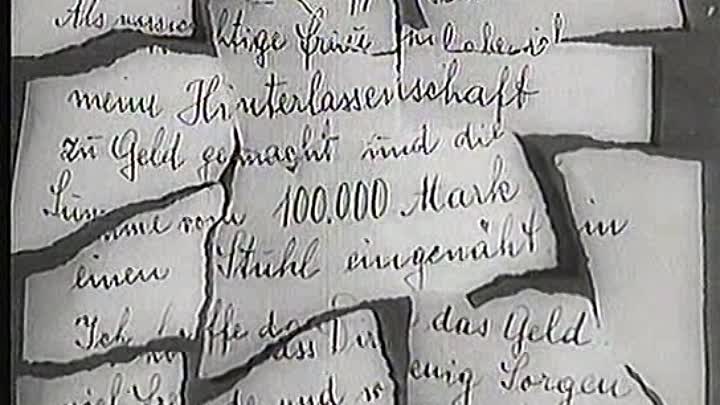 Als vorsichtige Frau habe ich
meine Hinterlassenschaft
zu Geld gemacht und die
Summe von 100.000 Mark
einen Stuhl eingenäht in
Ich hoffe dass Dir das Geld
viel und wenig Sorgen